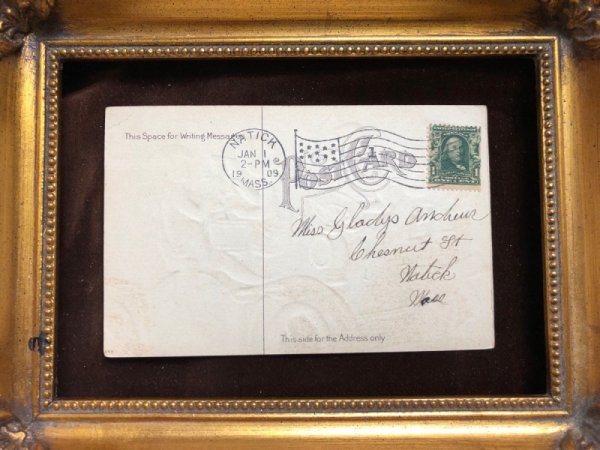 This Space for Writing Messages
NATICK
JAN 1
2-PM
1909
MASS.
1
POST CARD
1
Miss Gladys
Chesnut St
Natick
Mass
This side for the Address only